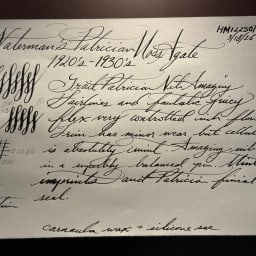 Waterman's Patrician Moss Agate
1920's-1930's
Great Patrician Nib Amazing
Hairlines and fantastic juicy
flex very controlled ink flow
Trim has minor wear but cellul
is absolutely mint. Amazing nib
in a weighty balanced pen. Mint
imprints and Patrician finial
seal.
carnauba wax + silicone sac